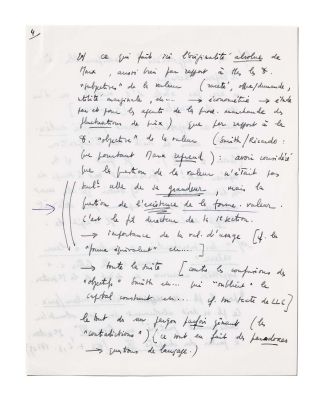 4
ce qui fait ici l'originalité absolue de
Marx, aussi bien par rapport à ttes les th.
"subjectives" de la valeur (rareté, offre/demande,
utilité marginale, etc... → économétrie →
pour les agents de la prod. marchande des
fluctuations de prix) que par rapport à la
th. "objective" de la valeur (Smith/Ricardo :
que pourtant Marx reprend) : avoir considéré
que la question de la valeur n'était pas
celle de sa grandeur, mais la
question de l'existence de la forme-valeur.
C'est le fil directeur de la 1e section.
→ importance de la val. d'usage [cf. la
"forme équivalent" etc... ]
→ toute la suite [contre les confusions de
Smith etc... qui "oublie" le
capital constant etc... cf. texte de LLC]
le tout dans un jargon parfois gênant (les
"contradictions") (ce sont en fait des paradoxes
→ questions de langage.)